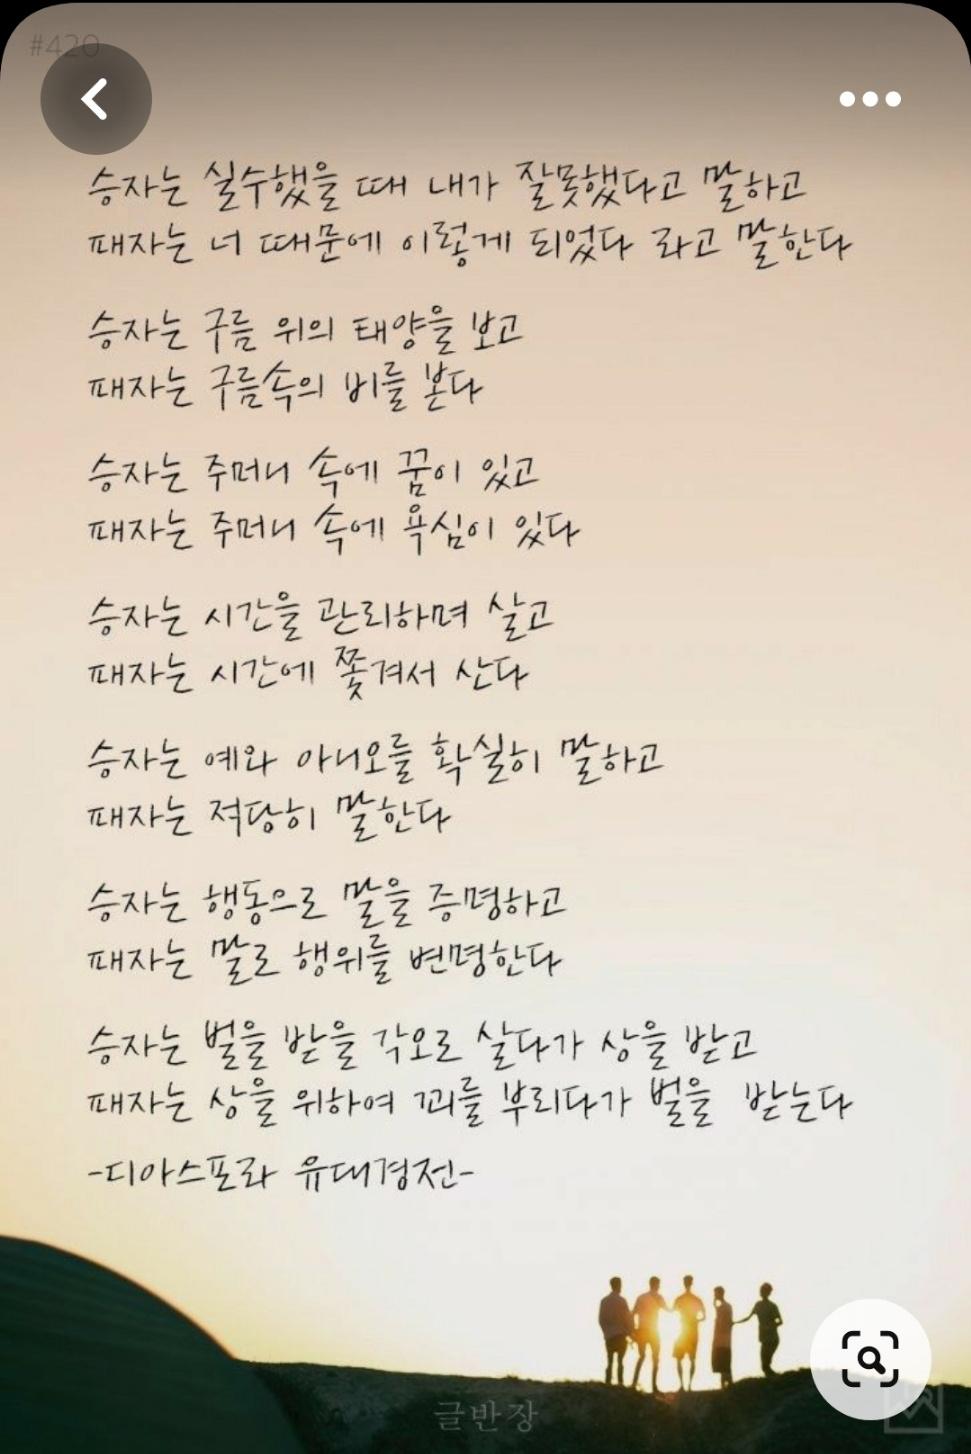 #420
승자는 실수했을 때 내가 잘못했다고 말하고
패자는 너 때문에 이렇게 되었다 라고 말한다
승자는 구름 위의 태양을 보고
패자는 구름속의 비를 본다
승자는 주머니 속에 꿈이 있고
패자는 주머니 속에 욕심이 있다
승자는 시간을 관리하며 살고
패자는 시간에 쫓겨서 산다
승자는 예와 아니오를 확실히 말하고
패자는 적당히 말한다
승자는 행동으로 말을 증명하고
패자는 말로 행위를 변명한다
승자는 벌을 받을 각오로 살다가 상을 받고
패자는 상을 위하여 꾀를 부리다가 벌을 받는다
-디아스포라 유대경전-
글반장